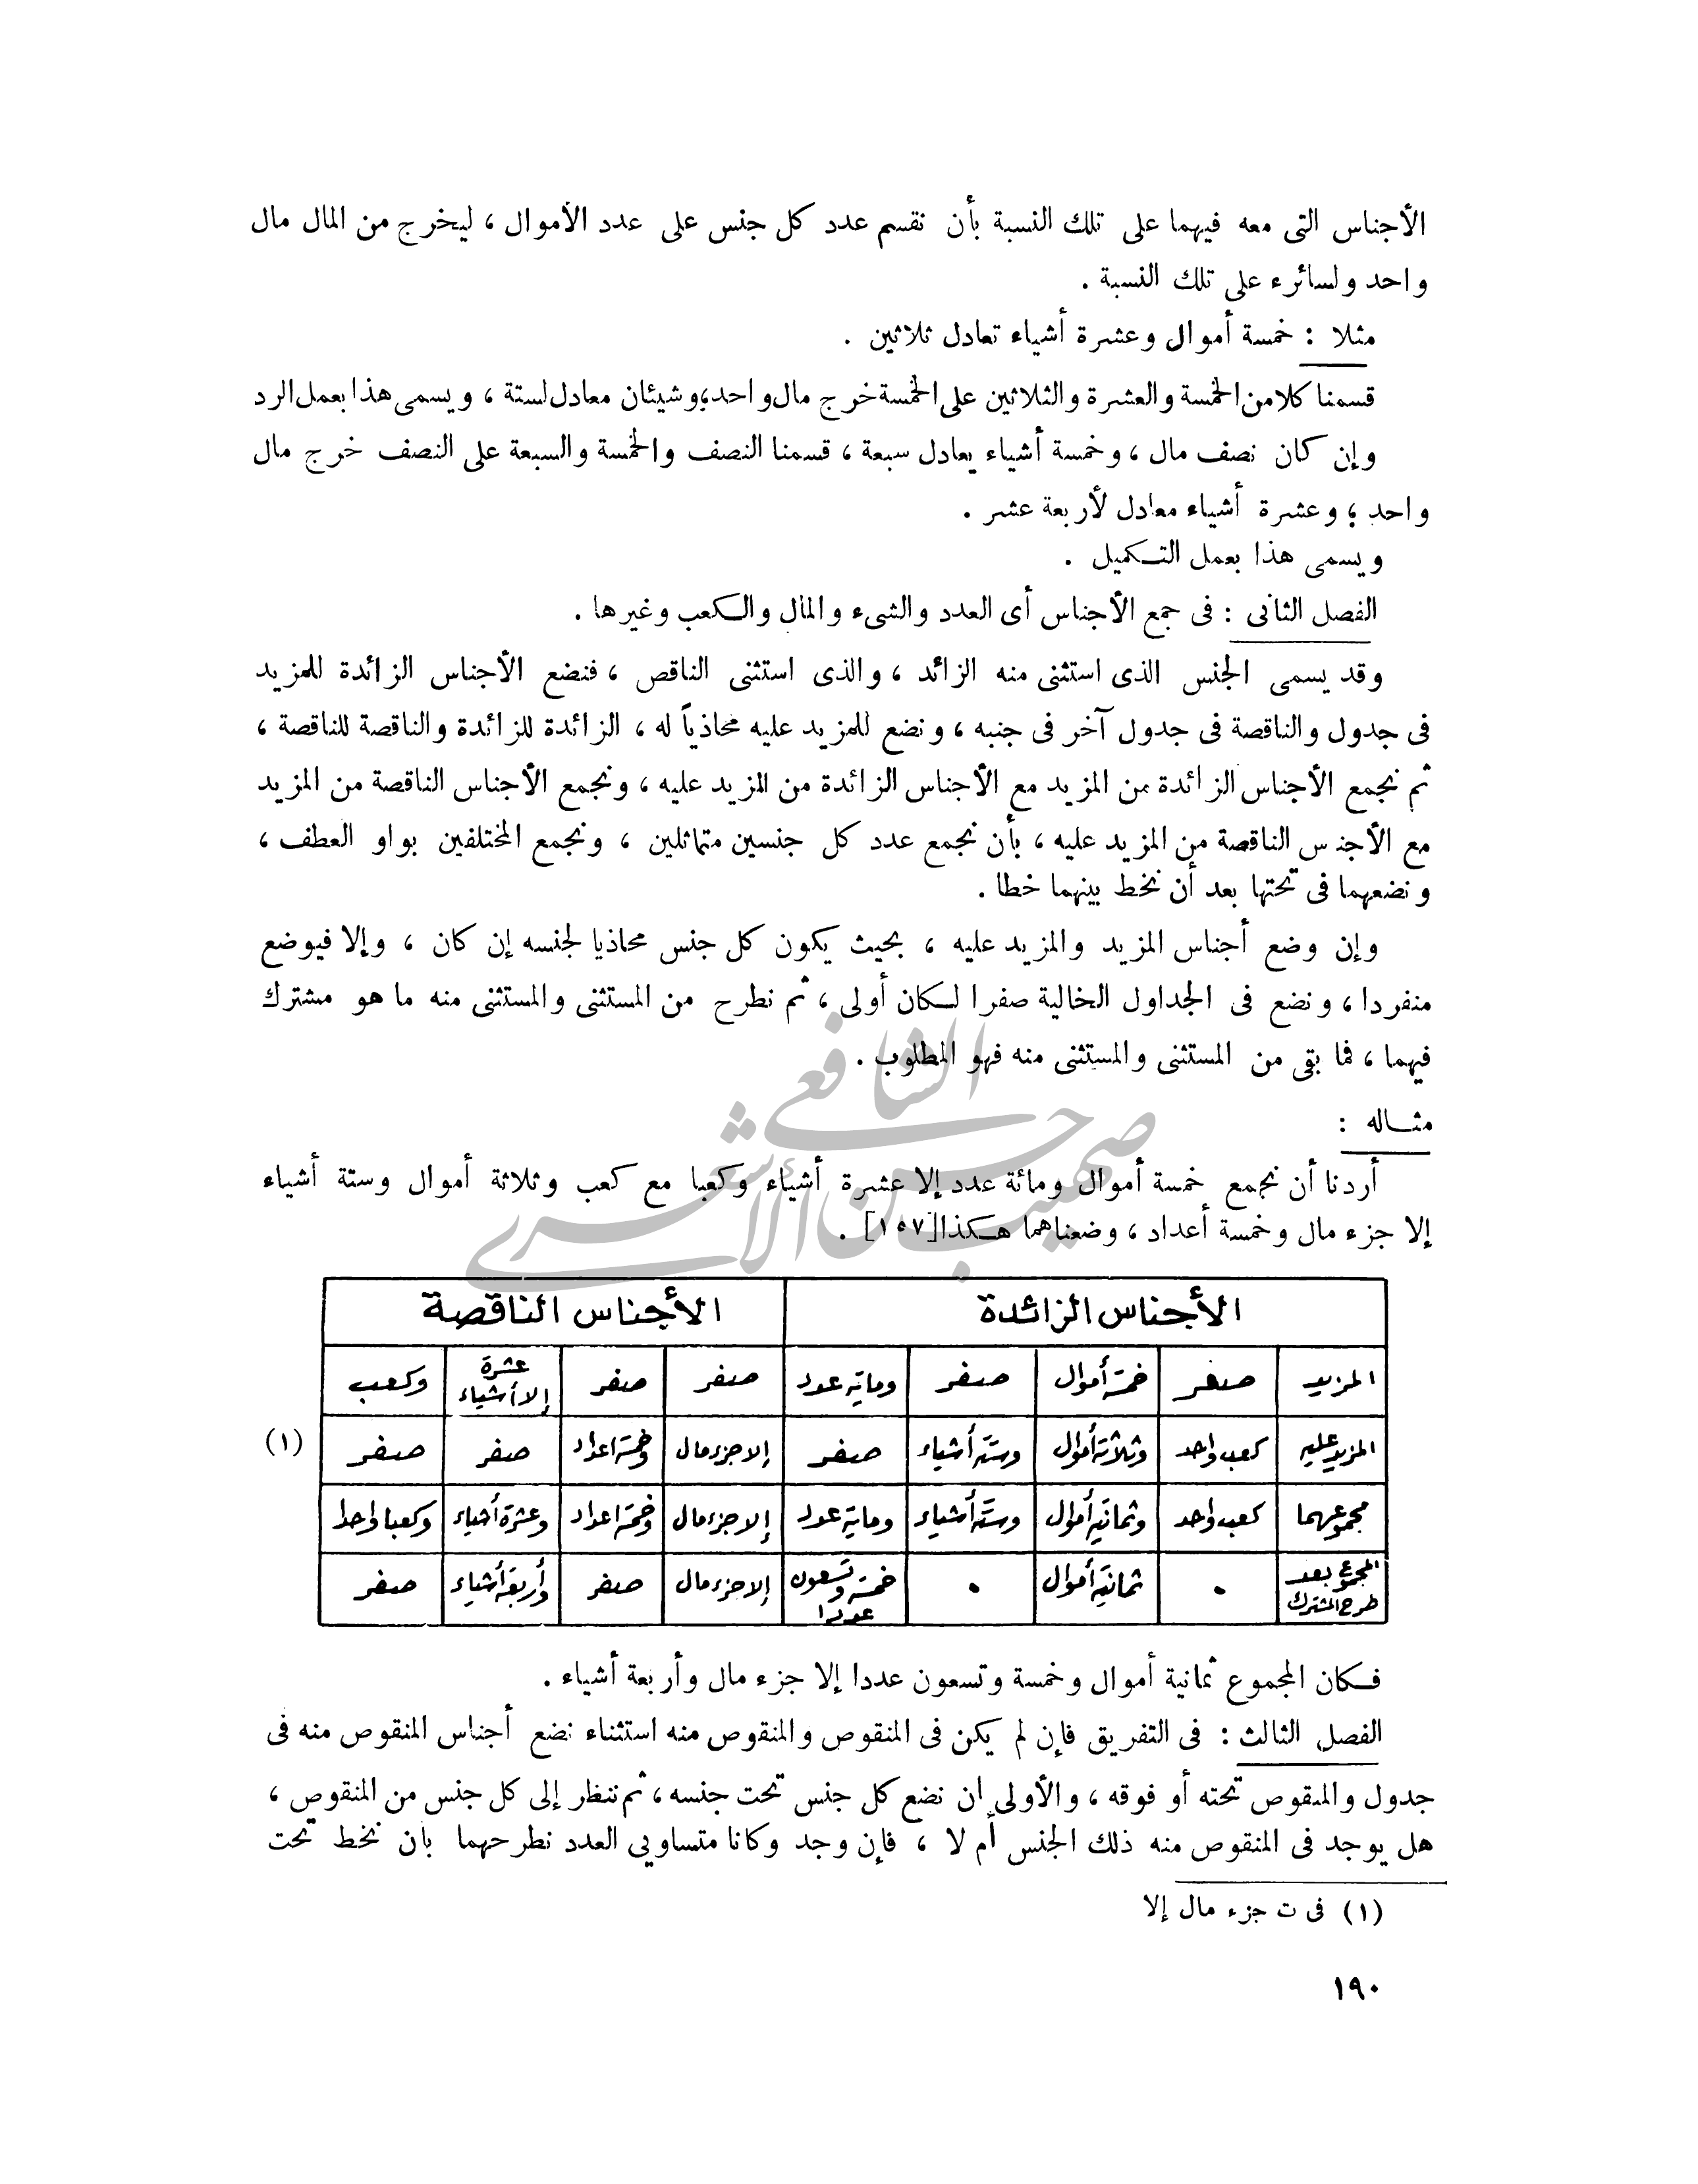 الأجناس التى معه فيهما على تلك النسبة بأن نقسم عدد كل جنس على عدد الأموال ، ليخرج من المال مال
واحد ولسائره على تلك النسبة .
مثلا : خمسة أموال وعشرة أشياء تعادل ثلاثين .
قسمنا كلا من الخمسة والعشرة والثلاثين على الخمسة خرج مال واحد، وشيئان معادل لستة ، ويسمى هذا بعمل الرد
وإن كان نصف مال ، وخمسة أشياء يعادل سبعة ، قسمنا النصف والخمسة والسبعة على النصف خرج مال
واحد ، وعشرة أشياء معادل لأربعة عشر .
ويسمى هذا بعمل التكميل .
الفصل الثانى : فى جمع الأجناس أى العدد والشىء والمال والكعب وغيرها .
وقد يسمى الجنس الذى استثنى منه الزائد ، والذى استثنى الناقص ، فنضع الأجناس الزائدة للمزيد
فى جدول والناقصة فى جدول آخر فى جنبه ، ونضع للمزيد عليه محاذياً له ، الزائدة للزائدة والناقصة للناقصة ،
ثم نجمع الأجناس الزائدة من المزيد مع الأجناس الزائدة من المزيد عليه ، ونجمع الأجناس الناقصة من المزيد
مع الأجناس الناقصة من المزيد عليه ، بأن نجمع عدد كل جنسين متماثلين ، ونجمع المختلفين بواو العطف ،
ونضعهما فى تحتها بعد أن نخط بينهما خطا .
وإن وضع أجناس المزيد والمزيد عليه ، بحيث يكون كل جنس محاذيا لجنسه إن كان ، وإلا فيوضع
منفردا ، ونضع فى الجداول الخالية صفرا لكان أولى ، ثم نطرح من المستثنى والمستثنى منه ما هو مشترك
فيهما ، فما بقى من المستثنى والمستثنى منه فهو المطلوب .
مثاله :
أردنا أن نجمع خمسة أموال ومائة عدد إلا عشرة أشياء وكعبا مع كعب وثلاثة أموال وستة أشياء
إلا جزء مال وخمسة أعداد ، وضعناهما هكذا [١٥٧] .
الأجناس الزائدة الأجناس الناقصة
المزيد صفر خمسة أموال صفر ومايه عدد صفر صفر عشرة إلا أشياء وكعب
المزيد عليه كعب واحد وثلاثة أموال وستة أشياء صفر إلا جزء مال وخمسة اعداد صفر صفر (١)
مجموعهما كعب واحد وثمانية أموال وستة أشياء ومايه عدد إلا جزء مال وخمسة اعداد وعشرة أشياء وكعبا واحدا
المجموع بعد طرح المشترك ٠ ثمانية أموال ٠ خمسة وتسعون عددا إلا جزء مال صفر وأربعة أشياء صفر
فكان المجموع ثمانية أموال وخمسة وتسعون عددا إلا جزء مال وأربعة أشياء .
الفصل الثالث : فى التفريق فإن لم يكن فى المنقوص والمنقوص منه استثناء نضع أجناس المنقوص منه فى
جدول والمنقوص تحته أو فوقه ، والأولى ان نضع كل جنس تحت جنسه ، ثم ننظر إلى كل جنس من المنقوص ،
هل يوجد فى المنقوص منه ذلك الجنس أم لا ، فإن وجد وكانا متساويي العدد نطرحهما بأن نخط تحت
(١) فى ت جزء مال إلا
١٩٠